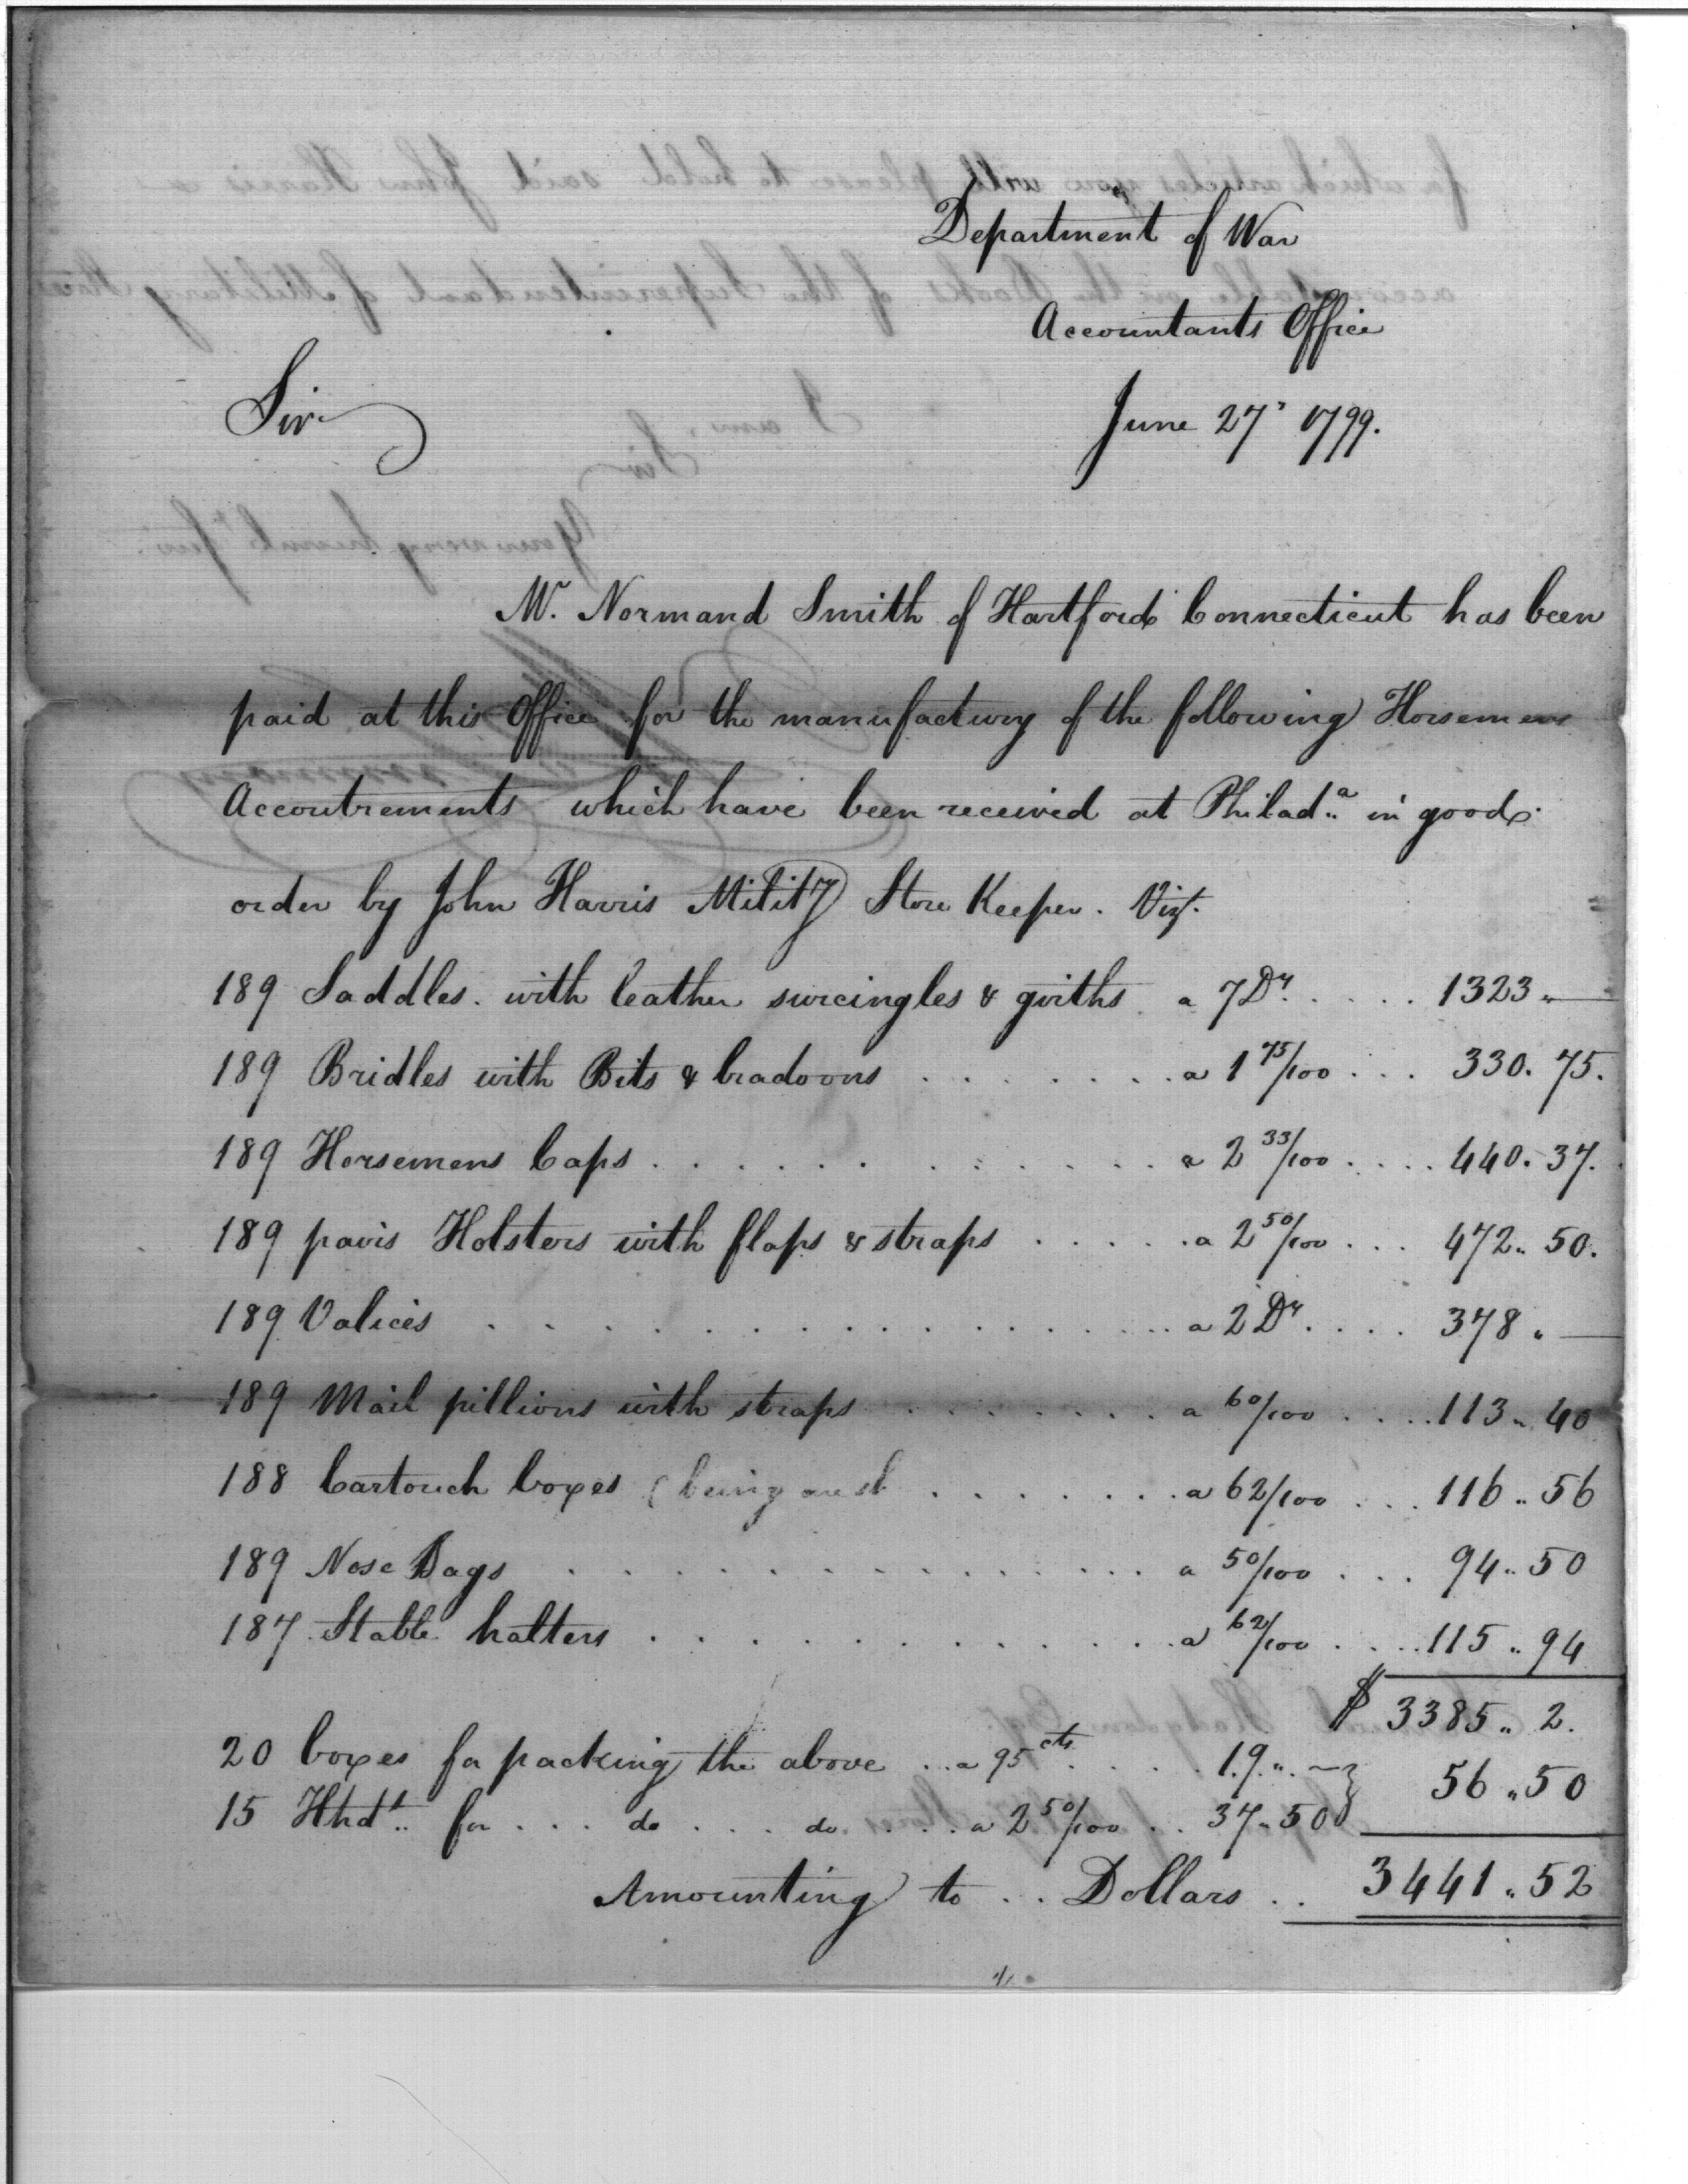 Department of War
Accountants Office
Sir June 27' 1799.
Mr. Normand Smith of Hartford Connecticut has been
paid at this Office for the manufactury of the following Horsemens
Accoutrements which have been received at Philad.a in good
order by John Harris Milit'y Store Keeper. Vizt.
189 Saddles. with leather surcingles & girths a 7 Drs. .... 1323 "—
189 Bridles with Bits & bradoons ....... a 1 75/100 ... 330. 75.
189 Horsemens Caps ............. a 2 33/100 .... 440. 37.
189 pairs Holsters with flaps & straps ..... a 2 50/100 ... 472 " 50.
189 Valices ................. a 2 Drs .... 378 " —
189 Mail pillions with straps ....... a 60/100 .... 113 " 40
188 Cartouch boxes (being ....... a 62/100 ... 116 " 56
189 Nose Bags ............ a 50/100 ... 94 " 50
187 Stable halters ............ a 62/100 .... 115 " 94
$ 3385 " 2.
20 boxes for packing the above .. a 95 cts .... 19 " —
56 " 50
15 Hhds. for ... do ... do .... a 2 50/100 .. 37 " 50
Amounting to .. Dollars .. 3441 " 52